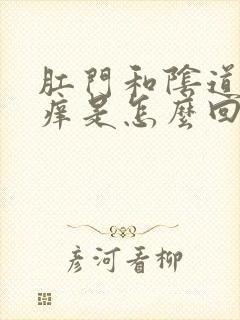 肛門和陰道
痒是怎麼回
彦河看柳